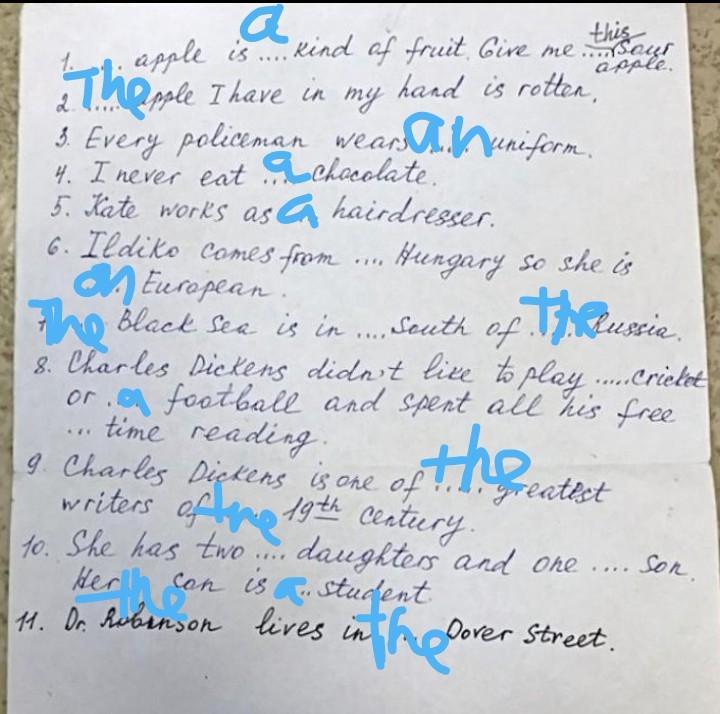 a this
1. .... apple is .... kind of fruit. Give me .... sour
apple.
2. The apple I have in my hand is rotten.
3. Every policeman wears an uniform.
4. I never eat ... a chocolate.
5. Kate works as a hairdresser.
6. Ildiko comes from .... Hungary so she is
an European.
7. The Black Sea is in .... South of the Russia.
8. Charles Dickens didn't like to play ..... cricket
or . a football and spent all his free
... time reading.
9. Charles Dickens is one of the ..... greatest
writers of the 19th century.
10. She has two .... daughters and one .... son.
Her the son is a .. student.
11. Dr. Robinson lives in the ... Dover Street.